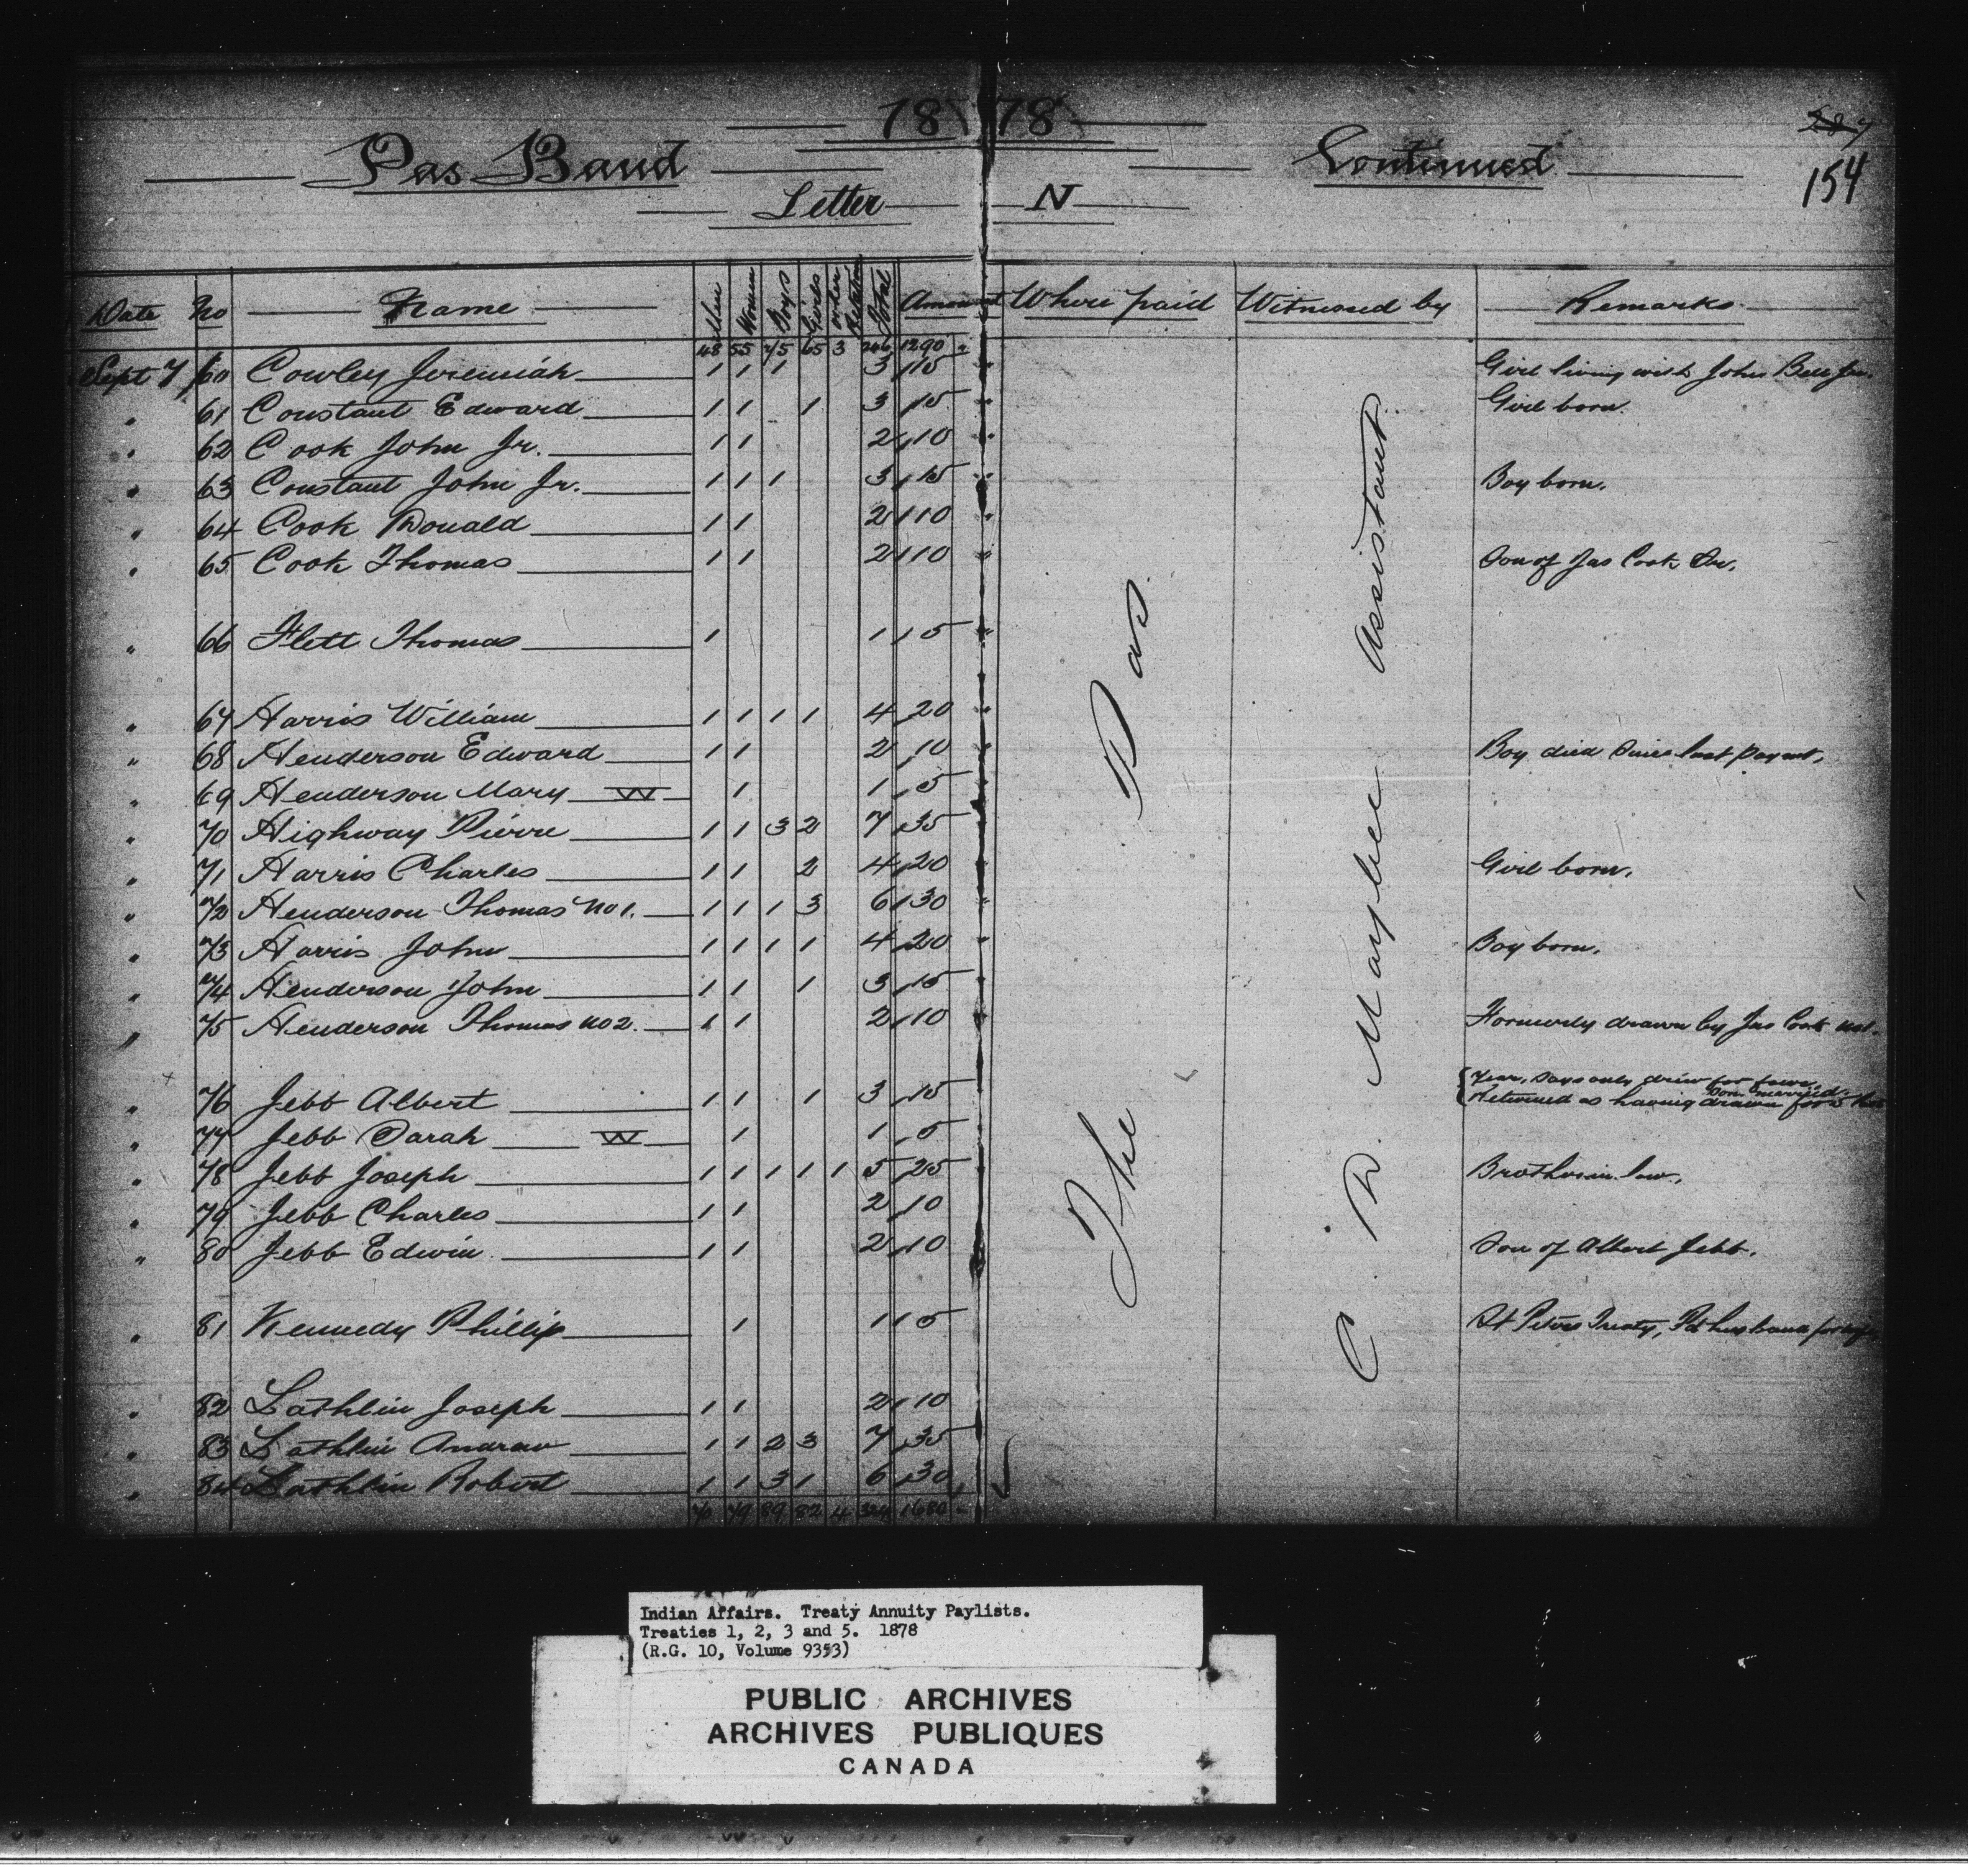 1878
287
154
Pas Band Continued
Letter N
Date No Name Men Women Boys Girls other Relations Total Amount Where paid Witnessed by Remarks
48 55 75 65 3 246 1290 "
Sept 7 60 Cowley Jeremiah 1 1 1 3 15 " Girl living with John Bell Jr.
" 61 Constant Edward 1 1 1 3 15 " Girl born.
" 62 Cook John Jr. 1 1 2 10 "
" 63 Constant John Jr. 1 1 1 3 15 " Boy born.
" 64 Cook Donald 1 1 2 10 "
" 65 Cook Thomas 1 1 2 10 " Son of Jas Cook Sr.
" 66 Flett Thomas 1 1 5 "
" 67 Harris William 1 1 1 1 4 20 "
" 68 Henderson Edward 1 1 2 10 " Boy died since last paymt.
" 69 Henderson Mary W 1 1 5 "
" 70 Highway Pierre 1 1 3 2 7 35 "
" 71 Harris Charles 1 1 2 4 20 " Girl born.
" 72 Henderson Thomas No 1. 1 1 1 3 6 30 "
" 73 Harris John 1 1 1 1 4 20 " Boy born.
" 74 Henderson John 1 1 1 3 15 "
" 75 Henderson Thomas No 2. 1 1 2 10 Formerly drawn by Jas Cook No1.
" 76 Jebb Albert 1 1 1 3 15 Returned as having drawn for 5 last
year, says only drew for four. Son married.
" 77 Jebb Sarah W 1 1 5
" 78 Jebb Joseph 1 1 1 1 1 5 25 Brother in law.
" 79 Jebb Charles 1 1 2 10
" 80 Jebb Edwin 1 1 2 10 Son of Albert Jebb.
" 81 Kennedy Phillip 1 1 5 St Peters Treaty, Pd husband for wife
" 82 Lathlin Joseph 1 1 2 10
" 83 Lathlin Andrew 1 1 2 3 7 35
" 84 Lathlin Robert 1 1 3 1 6 30
70 79 89 82 4 324 1680 "
The Pas.
C. D. Maybee Assistant.
Indian Affairs. Treaty Annuity Paylists.
Treaties 1, 2, 3 and 5. 1878
(R.G. 10, Volume 9353)
PUBLIC ARCHIVES
ARCHIVES PUBLIQUES
CANADA